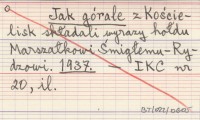 Jak górale z Koście-
lisk składali wyrazy hołdu
Marszałkowi Śmigłemu-Ry-
dzowi. 1937. — IKC nr
20, il.